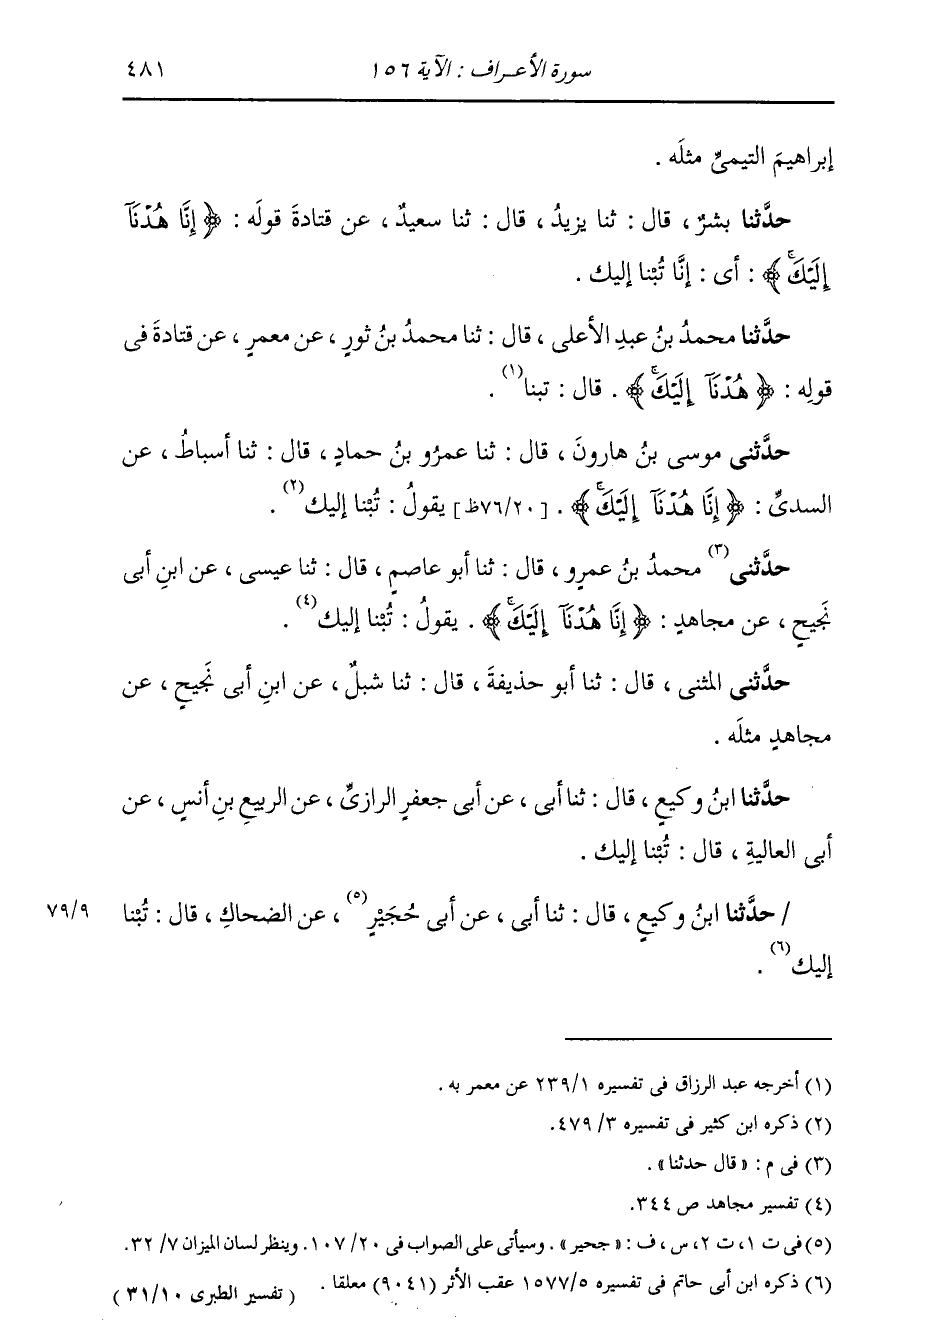 سورة الأعراف : الآية ١٥٦ ٤٨١
إبراهيمَ التيميِّ مثلَه .
حدَّثنا بشرٌ ، قال : ثنا يزيدُ ، قال : ثنا سعيدٌ ، عن قتادةَ قولَه : ﴿ إِنَّا هُدْنَآ
إِلَيْكَۚ ﴾ : أى : إنَّا تُبْنا إليك .
حدَّثنا محمدُ بنُ عبدِ الأعلى ، قال : ثنا محمدُ بنُ ثورٍ ، عن معمرٍ ، عن قتادةَ فى
قولِه : ﴿ هُدْنَآ إِلَيْكَۚ ﴾ . قال : تبنا(١) .
حدَّثنى موسى بنُ هارونَ ، قال : ثنا عمرُو بنُ حمادٍ ، قال : ثنا أسباطُ ، عن
السدىِّ : ﴿ إِنَّا هُدْنَآ إِلَيْكَۚ ﴾ . [٧٦/٢٠ظ] يقولُ : تُبْنا إليك(٢) .
حدَّثنى(٣) محمدُ بنُ عمرٍو ، قال : ثنا أبو عاصمٍ ، قال : ثنا عيسى ، عن ابنِ أبى
نَجيحٍ ، عن مجاهدٍ : ﴿ إِنَّا هُدْنَآ إِلَيْكَۚ ﴾ . يقولُ : تُبْنا إليك(٤) .
حدَّثنى المثنى ، قال : ثنا أبو حذيفةَ ، قال : ثنا شبلٌ ، عن ابنِ أبى نَجيحٍ ، عن
مجاهدٍ مثلَه .
حدَّثنا ابنُ وكيعٍ ، قال : ثنا أبى ، عن أبى جعفرٍ الرازىِّ ، عن الربيعِ بنِ أنسٍ ، عن
أبى العاليةِ ، قال : تُبْنا إليك .
/ حدَّثنا ابنُ وكيعٍ ، قال : ثنا أبى ، عن أبى حُجَيْرٍ(٥) ، عن الضحاكِ ، قال : تُبْنا ٧٩/٩
إليك(٦) .
(١) أخرجه عبد الرزاق فى تفسيره ٢٣٩/١ عن معمر به .
(٢) ذكره ابن كثير فى تفسيره ٣/ ٤٧٩.
(٣) فى م : « قال حدثنا » .
(٤) تفسير مجاهد ص ٣٤٤.
(٥) فى ت ١، ت ٢، س ، ف : « جحير » . وسيأتى على الصواب فى ٢٠/ ١٠٧. وينظر لسان الميزان ٧/ ٣٢.
(٦) ذكره ابن أبى حاتم فى تفسيره ١٥٧٧/٥ عقب الأثر (٩٠٤١) معلقا .
( تفسير الطبرى ٣١/١٠ )